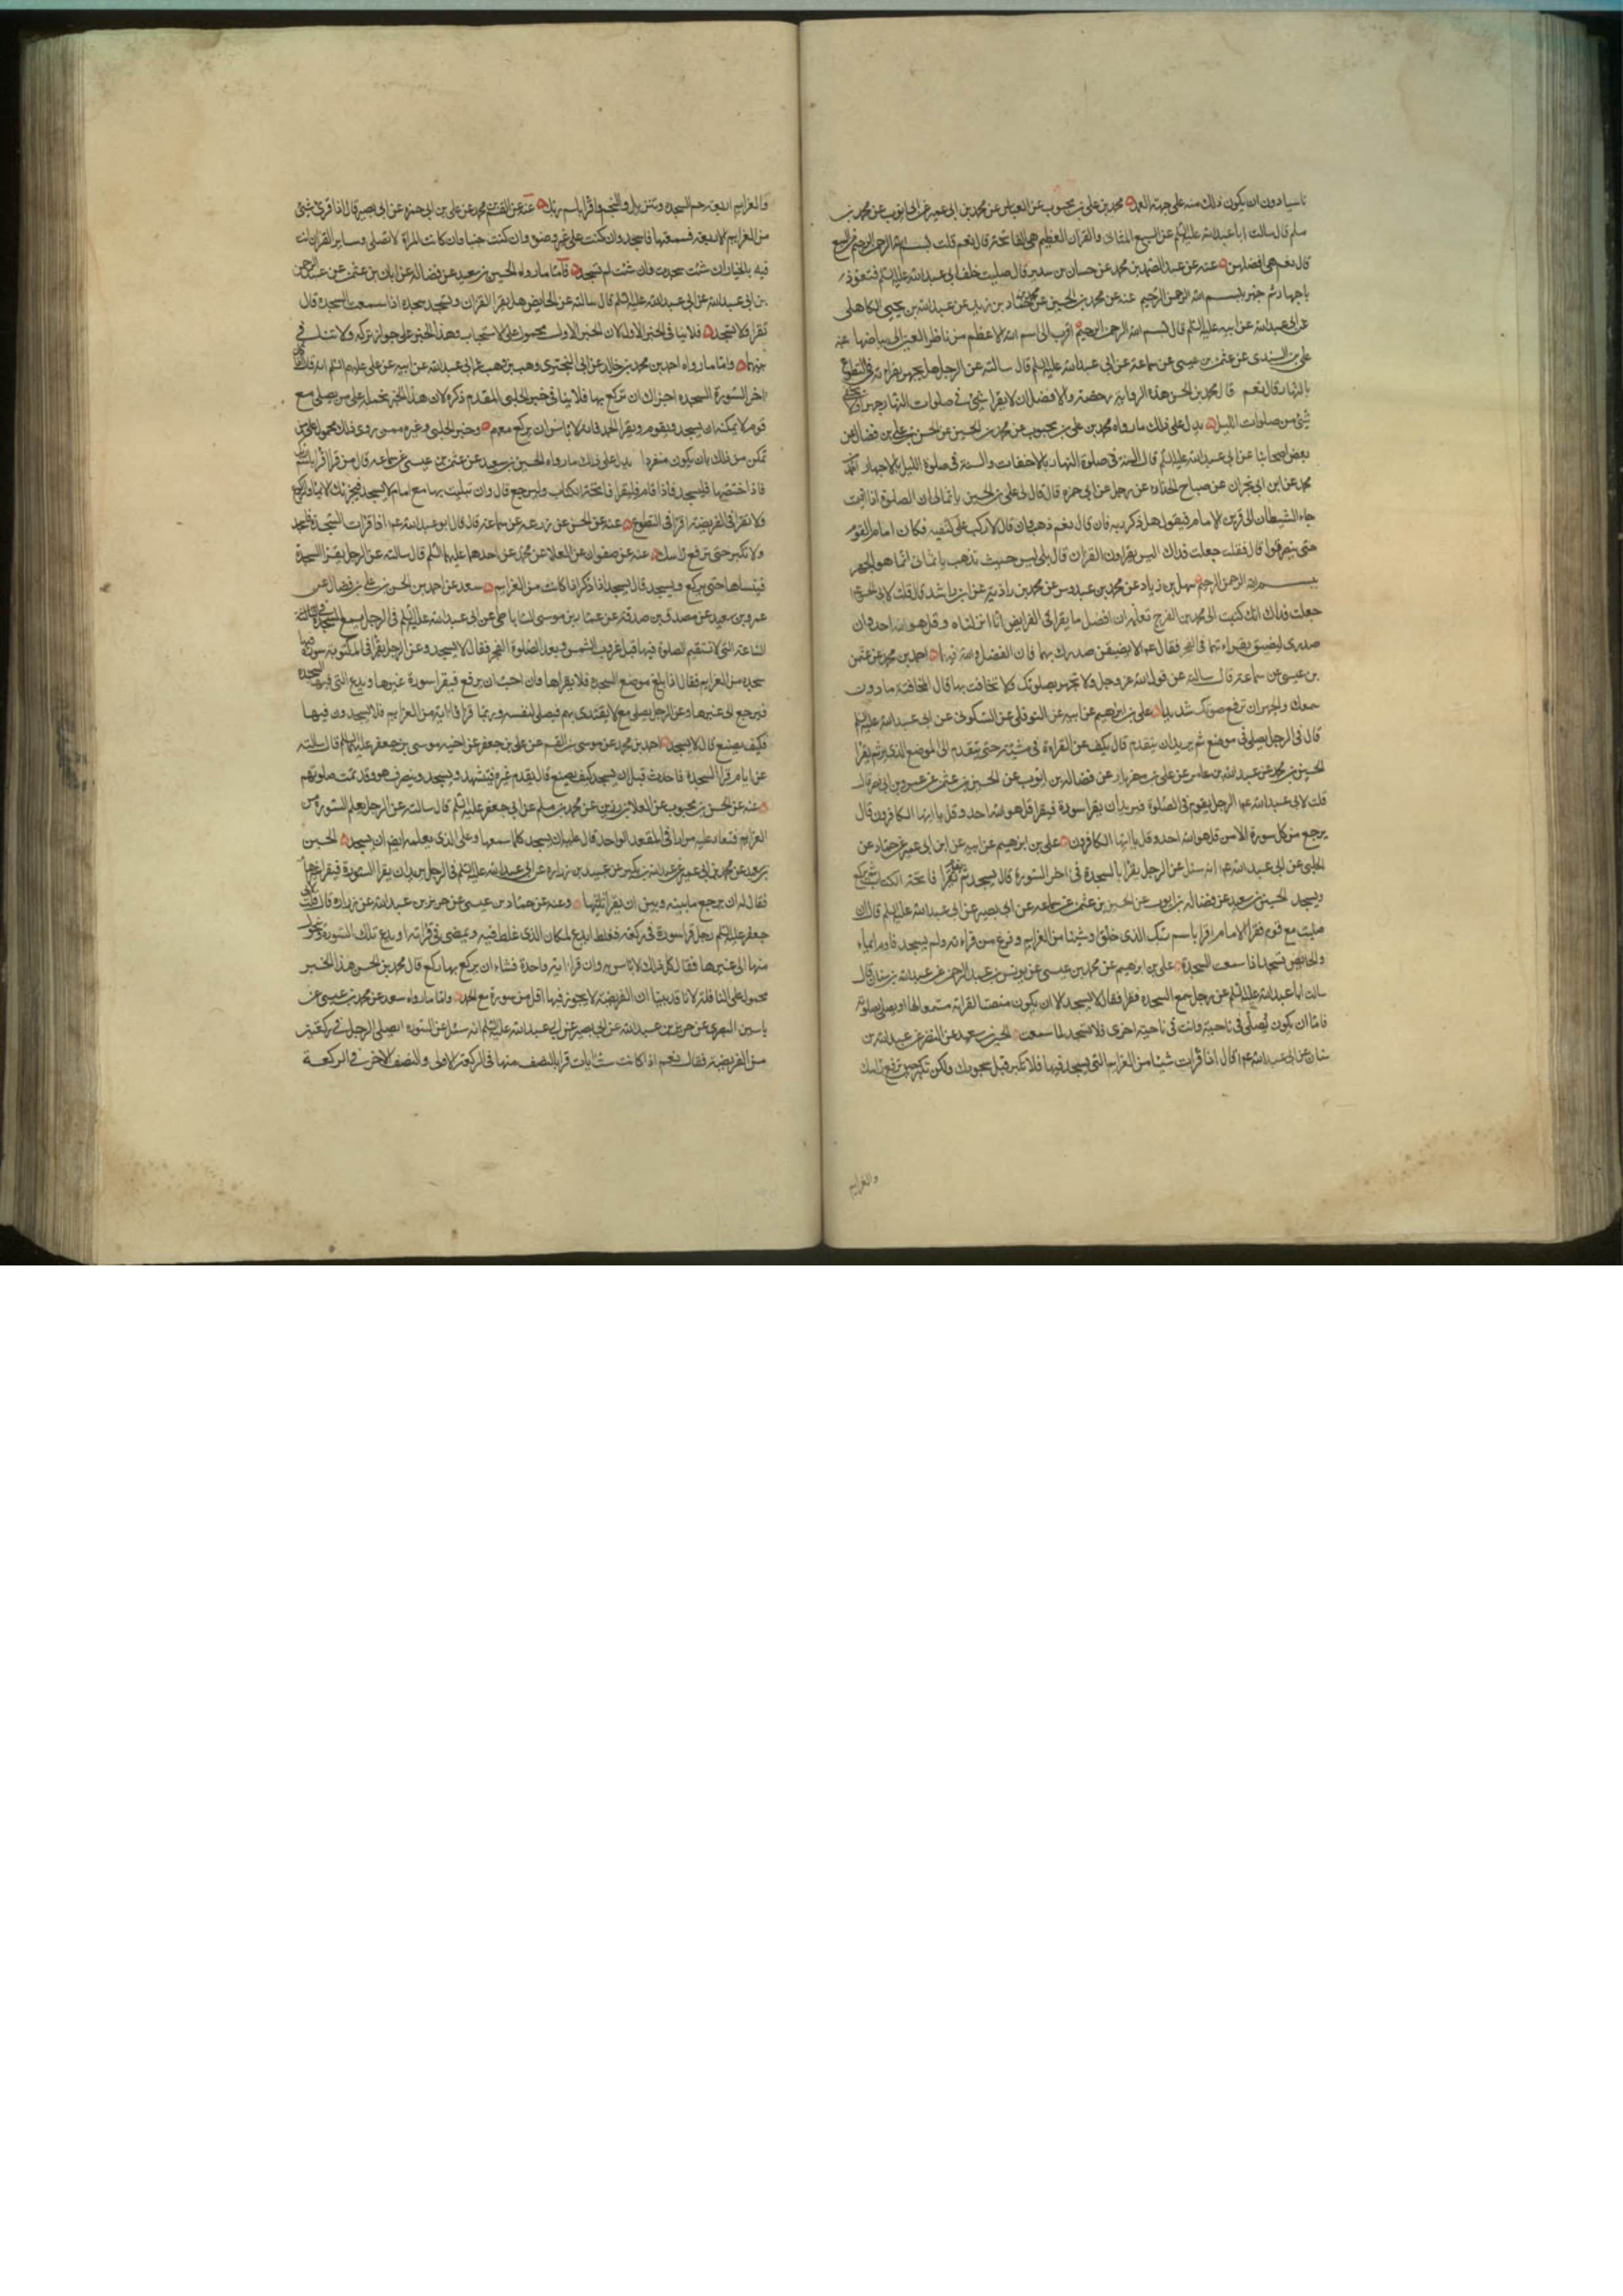 ناسيا دون ان يكون ذلك منه على جهة العمد محمد بن علي بن محبوب عن العباس عن محمد بن ابي عمير عن ابي ايوب عن محمد بن
مسلم قال سالت ابا عبدالله عليه السلم عن السبع المثاني والقران العظيم هي الفاتحة قال نعم قلت بسم الله الرحمن الرحيم من السبع
قال نعم هي افضلهن عنه عن عبد الصمد بن محمد عن حنان بن سدير قال صليت خلف ابي عبدالله عليه السلم فتعوذ
باجهار ثم جهر ببسم الله الرحمن الرحيم عنه عن محمد بن الحسين عن محمد بن حماد بن زيد عن عبدالله بن يحيى الكاهلي
عن ابي عبدالله عن ابيه عليه السلم قال بسم الله الرحمن الرحيم اقرب الى اسم الله الاعظم من ناظر العين الى بياضها عنه
علي بن السندي عن عثمن بن عيسى عن سماعة عن ابي عبدالله عليه السلم قال سالته عن الرجل هل يجهر بقراءته في التطوع
بالنهار قال نعم قال محمد بن الحسن هذه الرواية رخصة والافضل ان لا يقرا بشيء في صلوات النهار جهرا ولا
شيء من صلوات الليل يدل على ذلك ما رواه محمد بن علي بن محبوب عن محمد بن الحسين عن الحسن بن علي بن فضال عن
بعض اصحابنا عن ابي عبدالله عليه السلم قال السنة في صلوة النهار بالاخفات والسنة في صلوة الليل بالاجهار احمد بن
محمد عن ابن ابي نجران عن صباح الحذاء عن رجل عن ابي حمزه قال قال لي علي بن الحسين يا ثمالي ان الصلوة اذا اقيمت
جاء الشيطان الى قرين الامام فيقول هل ذكر ربه فان قال نعم ذهب وان قال لا ركب على كتفيه فكان امام القوم
حتى ينصرفوا قال فقلت جعلت فداك اليس يقراون القران قال بلى ليس حيث تذهب يا ثمالي انما هو الجهر
ببسم الله الرحمن الرحيم سهل بن زياد عن محمد بن عبدوس عن محمد بن زاذيه عن ابن راشد قال قلت لابي الحسن
جعلت فداك انك كتبت الى محمد بن الفرج تعلمه ان افضل ما يقرا في الفرايض انا انزلناه وقل هو الله احد وان
صدري ليضيق بقراءتهما في الفجر فقال عم لا يضيقن صدرك بهما فان الفضل والله فيهما احمد بن محمد عن عثمن
بن عيسى عن سماعة قال سالته عن قول الله عز وجل ولا تجهر بصلوتك ولا تخافت بها قال المخافتة ما دون
سمعك والجهر ان ترفع صوتك شديدا علي بن ابرهيم عن ابيه عن النوفلي عن السكوني عن ابي عبدالله عليه السلم
قال في الرجل يصلي في موضع ثم يريد ان يتقدم قال يكف عن القراءة في مشيته حتى يتقدم الى الموضع الذي يريد ثم يقرا
الحسين بن محمد عن عبدالله بن عامر عن علي بن مهزيار عن فضالة بن ايوب عن الحسين بن عثمن عن عمرو بن ابي نصر قال
قلت لابي عبدالله عم الرجل يقوم في الصلوة فيريد ان يقرا سورة فيقرا قل هو الله احد وقل يا ايها الكافرون قال
يرجع من كل سورة الا من قل هو الله احد وقل يا ايها الكافرون علي بن ابرهيم عن ابيه عن ابن ابي عمير عن حماد عن
الحلبي عن ابي عبدالله عم انه سئل عن الرجل يقرا بالسجدة في اخر السورة قال يسجد ثم يقوم فيقرا فاتحة الكتاب ثم يركع
ويسجد الحسين بن سعيد عن فضالة بن ايوب عن الحسين بن عثمن عن سماعه عن ابي بصير عن ابي عبدالله عليه السلم قال ان
صليت مع قوم فقرا الامام اقرا باسم ربك الذي خلق او شيئا من العزايم وفرغ من قراءته ولم يسجد فاوم ايماء
والحايض تسجد اذا سمعت السجدة علي بن ابرهيم عن محمد بن عيسى عن يونس بن عبد الرحمن عن عبدالله بن سنان قال
سالت ابا عبدالله عليه السلم عن رجل سمع السجده تقرا فقال لا يسجد الا ان يكون منصتا لقراءته مستمعا لها او يصلي بصلوته
فاما ان يكون يصلي في ناحية وانت في ناحية اخرى فلا تسجد لما سمعت الحسين بن سعيد عن النضر عن عبدالله بن
سنان عن ابي عبدالله عم قال اذا قرات شيئا من العزايم التي يسجد فيها فلا تكبر قبل سجودك ولكن تكبر حين ترفع راسك
والعزايم
والعزايم اربعة حم السجده وتنزيل والنجم واقرا باسم ربك عنه عن القسم بن محمد عن علي بن ابي حمزه عن ابي بصير قال اذا قرئ شيء
من العزايم الاربعة فسمعتها فاسجد وان كنت على غير وضوء وان كنت جنبا وان كانت المراة لا تصلي وساير القران انت
فيه بالخيار ان شئت سجدت وان شئت لم تسجد فاما ما رواه الحسين بن سعيد عن فضالة عن ابان بن عثمن عن عبد الرحمن
بن ابي عبدالله عن ابي عبدالله عليه السلم قال سالته عن الحايض هل يقرا القران وتسجد سجدة اذا سمعت السجدة قال
تقرا ولا تسجد فلا ينافي الخبر الاول لان الخبر الاول محمول على الاستحباب وهذا الخبر على جواز تركه ولا تنافي
بينهما واما ما رواه احمد بن محمد بن خالد عن ابي البختري وهب بن وهب عن ابي عبدالله عن ابيه عن علي عليهم السلم انه قال اذا كان
اخر السورة السجده اجزاك ان تركع بها فلا ينافي خبر الحلبي المقدم ذكره لان هذا الخبر نحمله على من يصلي مع
قوم لا يمكنه ان يسجد ويقوم ويقرا الحمد فانه لا باس ان يركع معهم وخبر الحلبي وغيره ممن روى ذلك محمول على من
تمكن من ذلك بان يكون منفردا يدل على ذلك ما رواه الحسين بن سعيد عن عثمن بن عيسى عن سماعه قال من قرا اقرا باسم ربك
فاذا ختمها فليسجد فاذا قام فليقرا فاتحة الكتاب وليركع قال وان ابتليت بها مع امام لا يسجد فيجزئك الايماء والركوع
ولا تقرا في الفريضة اقرا في التطوع عنه عن الحسن عن زرعه عن سماعة قال قال ابو عبدالله عم اذا قرات السجدة فاسجد
ولا تكبر حتى ترفع راسك عنه عن صفوان عن العلا عن محمد عن احدهما عليهما السلم قال سالته عن الرجل يقرا السجدة
فينساها حتى يركع ويسجد قال يسجد اذا ذكر اذا كانت من العزايم سعد عن احمد بن الحسن بن علي بن فضال عن
عمرو بن سعيد عن مصدق بن صدقة عن عمار بن موسى الساباطي عن ابي عبدالله عليه السلم في الرجل يسمع السجدة في
الساعة التي لا تستقيم الصلوة فيها قبل غروب الشمس وبعد الصلوة الفجر فقال لا يسجد وعن الرجل يقرا في المكتوبة سورة فيها
سجدة من العزايم فقال اذا بلغ موضع السجده فلا يقراها وان احب ان يرجع فيقرا سورة غيرها ويدع التي فيها السجدة
فيرجع الى غيرها وعن الرجل يصلي مع لا يقتدي بهم فيصلي لنفسه وربما قراوا اية من العزايم فلا يسجدون فيها
فكيف يصنع قال لا يسجد احمد بن محمد عن موسى بن القسم عن علي بن جعفر عن اخيه موسى بن جعفر عليهما السلم قال سالته
عن امام قرا السجدة فاحدث قبل ان يسجد كيف يصنع قال يقدم غيره فيتشهد ويسجد وينصرف هو وقد تمت صلوتهم
عنه عن الحسن بن محبوب عن العلا بن رزين عن محمد بن مسلم عن ابي جعفر عليه السلم قال سالته عن الرجل يعلم السورة من
العزايم فتعاد عليه مرارا في المقعد الواحد قال عليه ان يسجد كلما سمعها وعلى الذي يعلمه ايضا ان يسجد الحسين
بن سعيد عن محمد بن ابي عمير عن عبدالله بن بكير عن عبيد بن زراره عن ابي عبدالله عليه السلم في الرجل يريد ان يقرا السورة فيقرا غيرها
فقال له ان يرجع ما بينه وبين ان يقرا ثلثيها وعنه عن حماد بن عيسى عن حريز بن عبدالله عن زراره قال قلت لابي
جعفر عليه السلم رجل قرا سورة في ركعة فغلط ايدع المكان الذي غلط فيه ويمضي في قراءته او يدع تلك السورة ويتحول
منها الى غيرها فقال كل ذلك لا باس به وان قرا اية واحدة فشاء ان يركع بها ركع قال محمد بن الحسن هذا الخبر
محمول على النافلة لانا قد بينا ان الفريضة لا يجوز فيها اقل من سورة مع الحمد واما ما رواه سعد عن محمد بن عيسى عن
ياسين البصري عن حريز بن عبدالله عن ابي بصير عن ابي عبدالله عليه السلم انه سئل عن السورة ايصلي الرجل في ركعتين
من الفريضة فقال نعم اذا كانت ست ايات قرا بالنصف منها في الركعة الاولى والنصف الاخر في الركعة